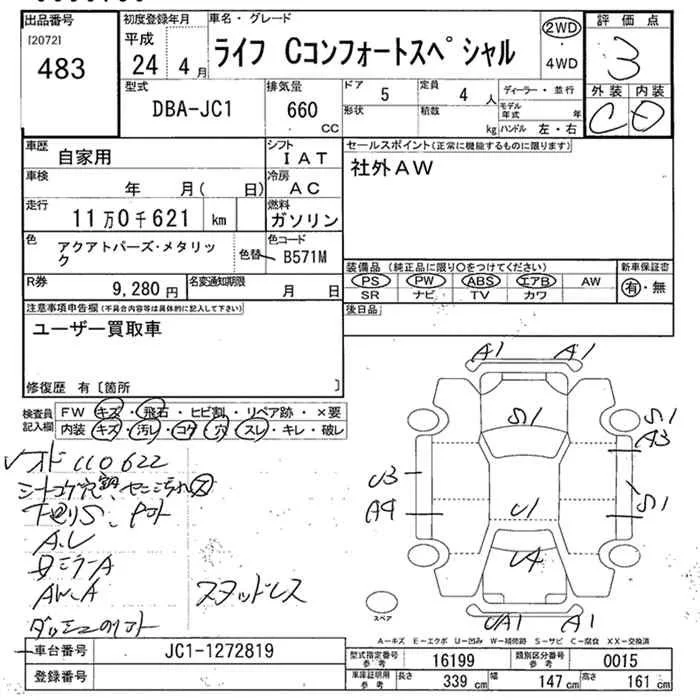 出品番号 初度登録年月 車名・グレード 評価点
[2072] 平成 ライフ Cコンフォートスペシャル 2WD 3
483 24 年 4 月 4WD
型式 排気量 ドア 5 定員 4 人 ディーラー・並行 外装 内装
DBA-JC1 660 CC 形状 積数 kg モデル年式 年 C D
ハンドル 左・右
車歴 自家用 シフト IAT セールスポイント(正常に機能するものに限ります)
車検 年 月( 日) 冷房 AC 社外AW
走行 11万0千621 km 燃料 ガソリン
色 アクアトパーズ・メタリック 色替 色コード B571M
装備品(純正品に限り○をつけてください) 新車保証書
R券 9,280円 名変通知期限 月 日 PS PW ABS エアB AW 有・無
SR ナビ TV カワ
注意事項申告欄(不具合内容等は具体的に記入して下さい) 後日品
ユーザー買取車
修復歴 有〔箇所 〕
検査員記入欄 FW キズ・飛石・ヒビ割・リペア跡・×要
内装 キズ・汚レ・コゲ・穴・スレ・キレ・破レ
A1 A1
S1 S1
A3
U3
A4 U1 S1
U4
UA1 A1
110622
シートコゲ穴
A.L
ミラーA
AW.A
スタッドレス
スペア
A-キズ E-エクボ U-凹み W-補修跡 S-サビ C-腐食 XX-交換済
車台番号 JC1-1272819 型式指定番号 参考 16199 類別区分番号 参考 0015
登録番号 車庫証明用 参考 長さ 339 cm 幅 147 cm 高さ 161 cm